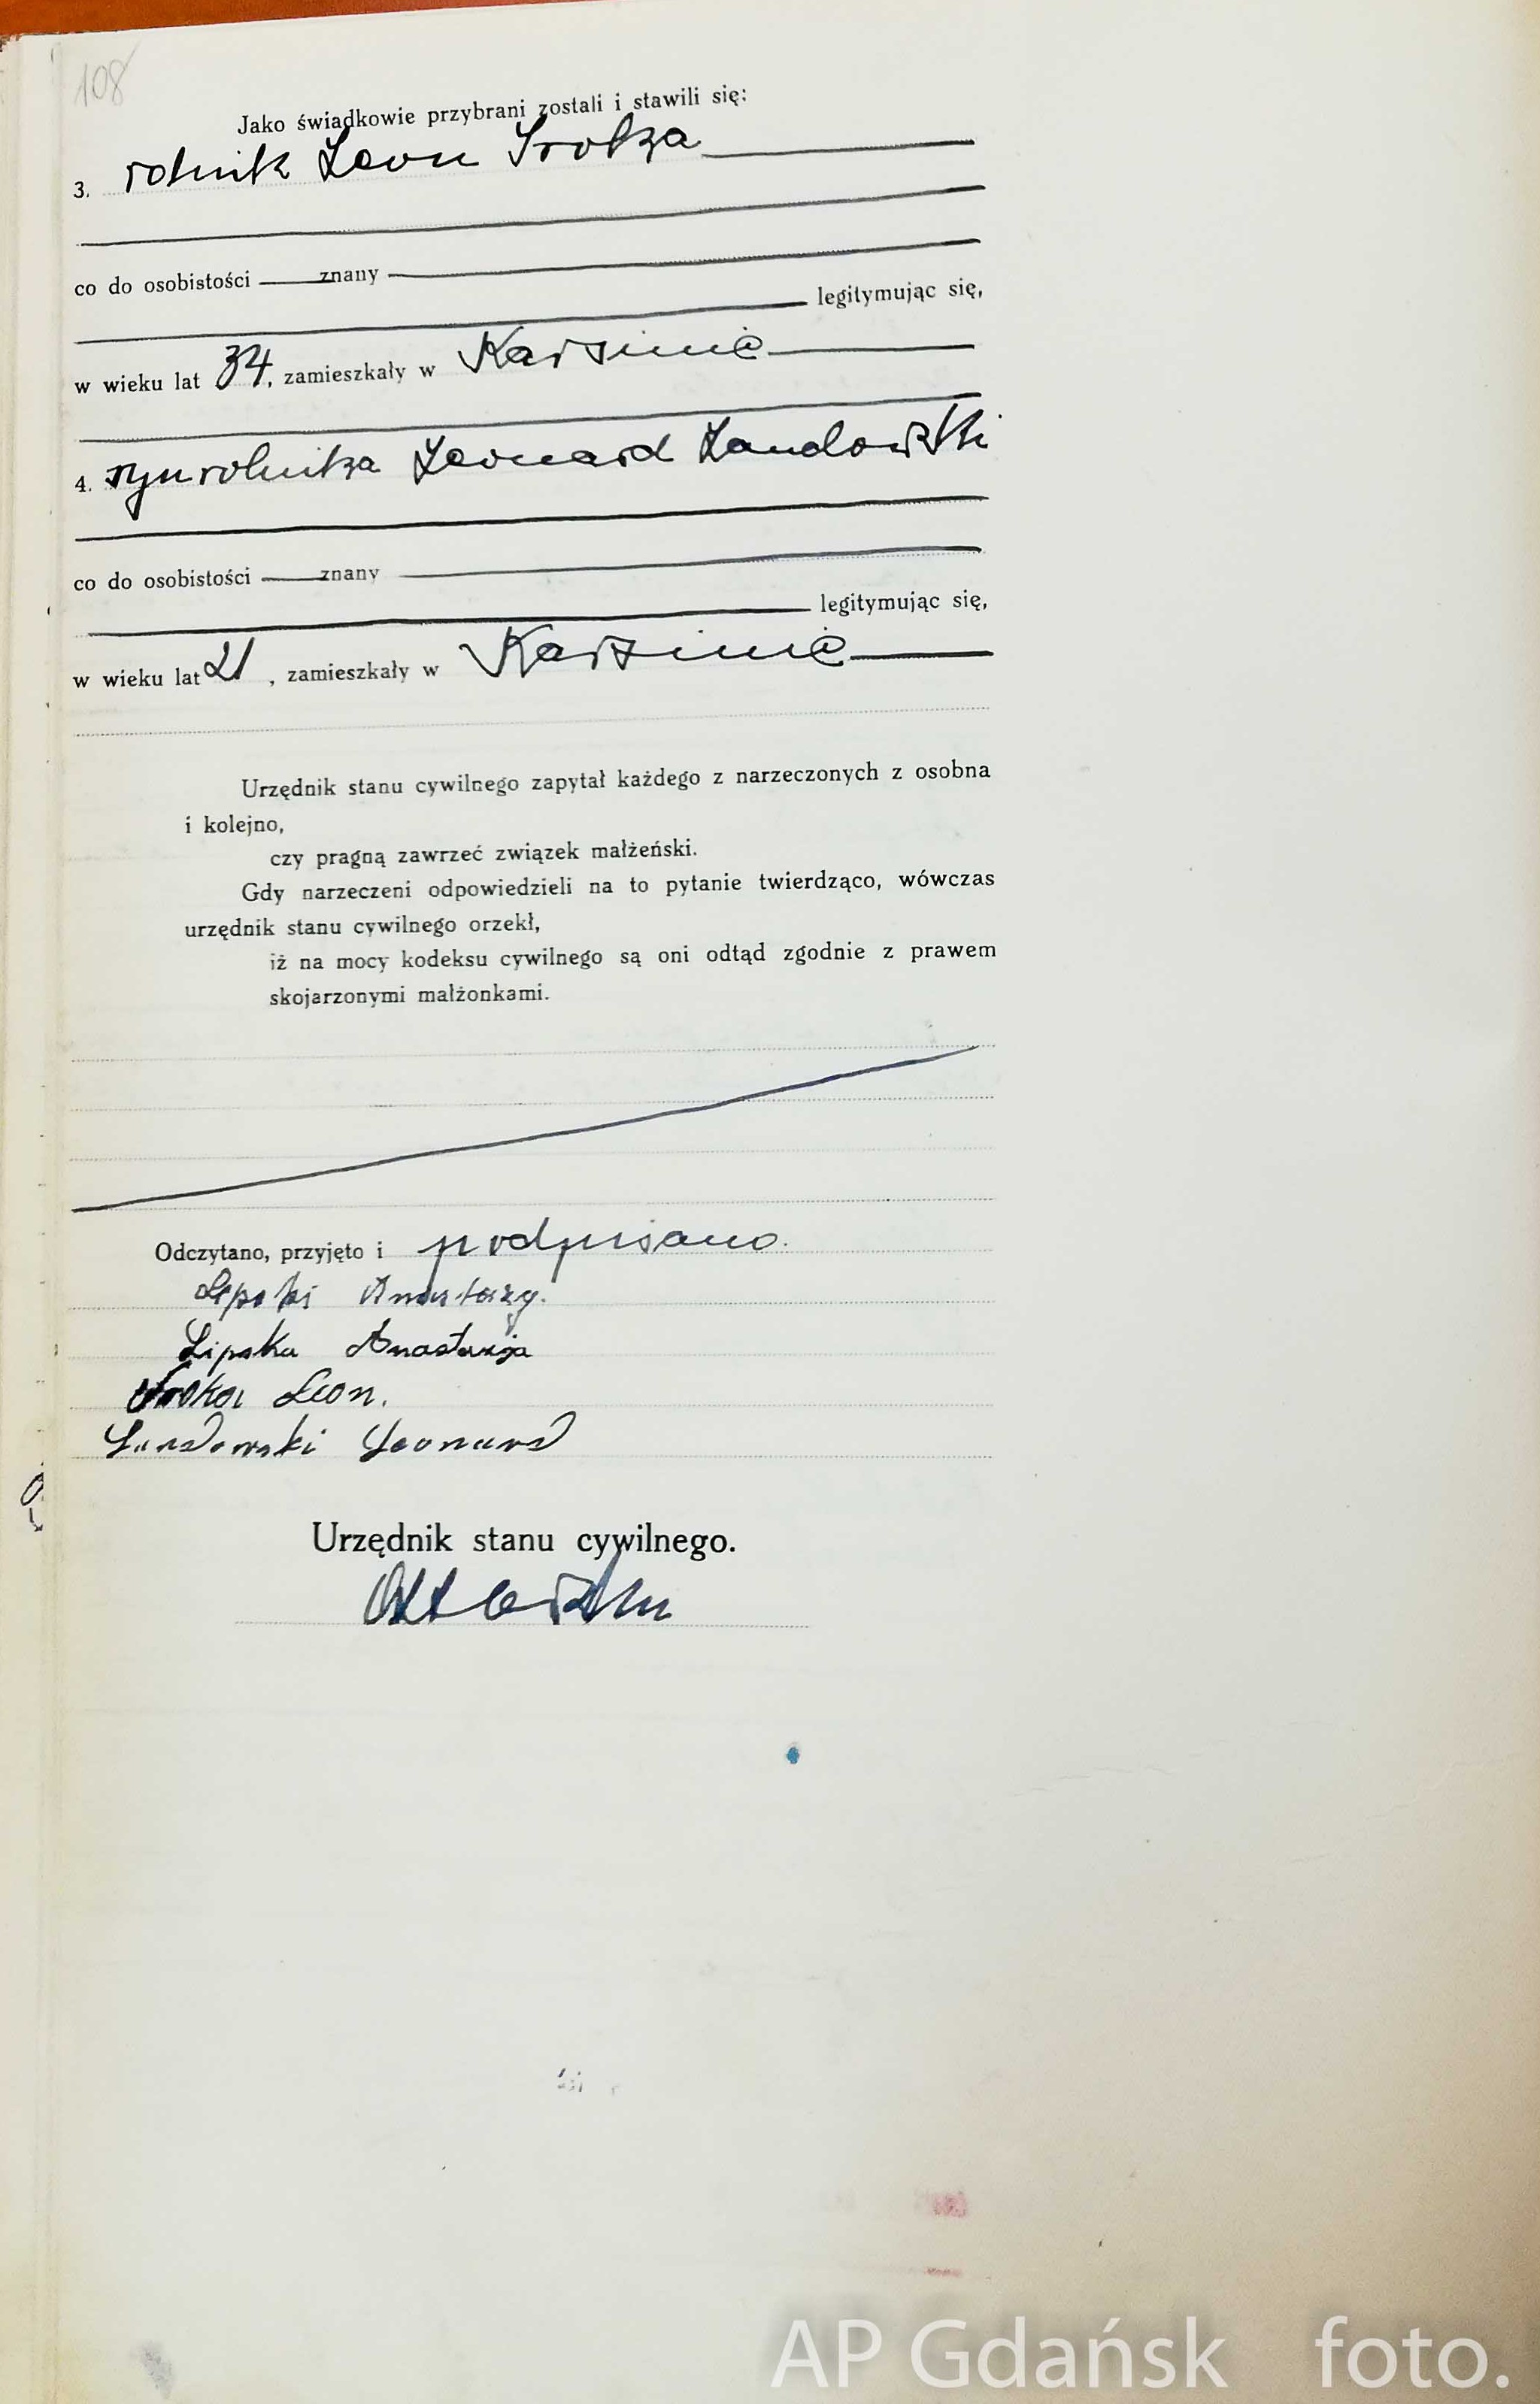 108
Jako świadkowie przybrani zostali i stawili się:
3. rolnik Leon Sroka
co do osobistości znany
legitymując się,
w wieku lat 34, zamieszkały w Karsinie
4. syn rolnika Leonard Landowski
co do osobistości znany
legitymując się,
w wieku lat 21, zamieszkały w Karsinie
Urzędnik stanu cywilnego zapytał każdego z narzeczonych z osobna
i kolejno,
czy pragną zawrzeć związek małżeński.
Gdy narzeczeni odpowiedzieli na to pytanie twierdząco, wówczas
urzędnik stanu cywilnego orzekł,
iż na mocy kodeksu cywilnego są oni odtąd zgodnie z prawem
skojarzonymi małżonkami.
Odczytano, przyjęto i podpisano.
Lipski Anastazy.
Lipska Anastazja
Sroka Leon.
Landowski Leonard
Urzędnik stanu cywilnego.
AP Gdańsk foto.